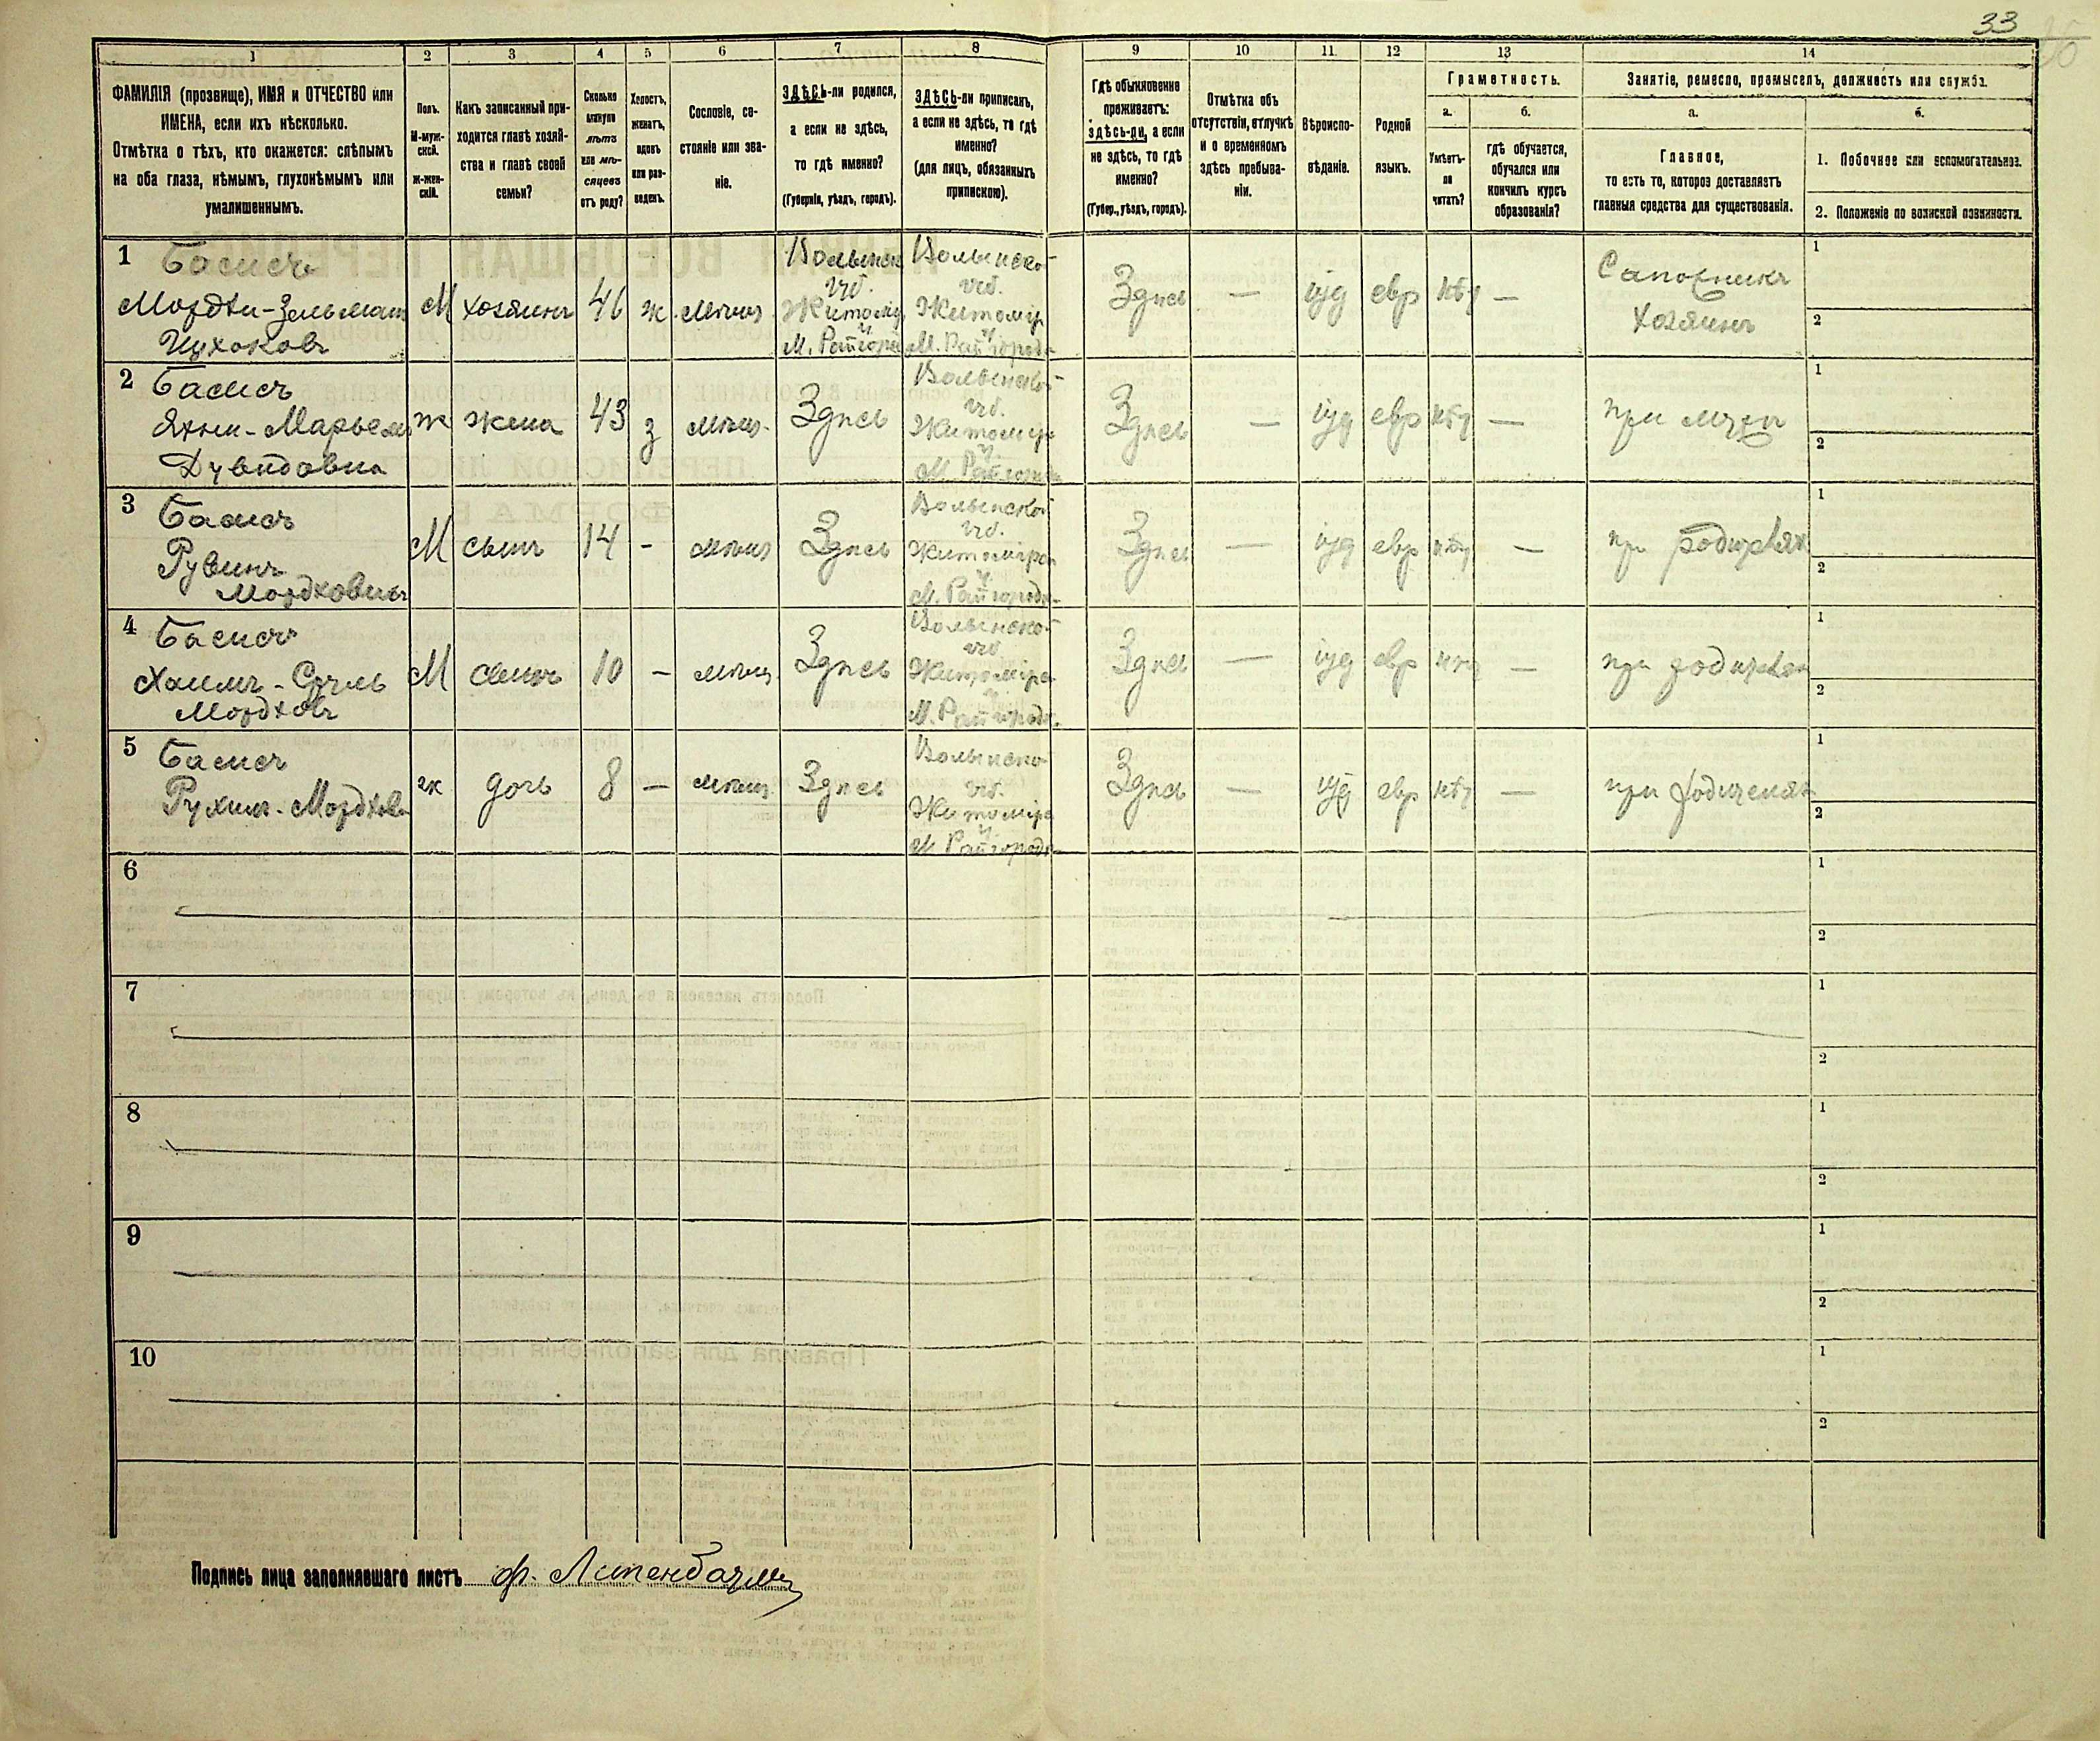 33
1 2 3 4 5 6 7 8 9 10 11 12 13 14
ФАМИЛІЯ (прозвище), ИМЯ и ОТЧЕСТВО или
ИМЕНА, если ихъ нѣсколько.
Отмѣтка о тѣхъ, кто окажется: слѣпымъ
на оба глаза, нѣмымъ, глухонѣмымъ или
умалишеннымъ.
Полъ.
М-муж-
ской.
ж-жен-
скій.
Какъ записанный при-
ходится главѣ хозяй-
ства и главѣ своей
семьи?
Сколько
минуло
лѣтъ
или мѣ-
сяцевъ
отъ роду?
Холостъ,
женатъ,
вдовъ
или раз-
веденъ.
Сословіе, со-
стояніе или зва-
ніе.
ЗДѢСЬ-ли родился,
а если не здѣсь,
то гдѣ именно?
(Губернія, уѣздъ, городъ).
ЗДѢСЬ-ли приписанъ,
а если не здѣсь, то гдѣ
именно?
(для лицъ, обязанныхъ
припискою).
Гдѣ обыкновенно
проживаетъ:
здѣсь-ли, а если
не здѣсь, то гдѣ
именно?
(Губер., уѣздъ, городъ).
Отмѣтка объ
отсутствіи, отлучкѣ
и о временномъ
здѣсь пребыва-
ніи.
Вѣроиспо-
вѣданіе.
Родной
языкъ.
Грамотность.
а.
Умѣетъ-
ли
читать?
б.
гдѣ обучается,
обучался или
кончилъ курсъ
образованія?
Занятіе, ремесло, промыселъ, должность или служба.
а.
Главное,
то есть то, которое доставляетъ
главныя средства для существованія.
б.
1. Побочное или вспомогательное.
2. Положеніе по воинской повинности.
1 Басисъ
Мордки-Зельман
Ицхоковъ
М хозяинъ 46 ж мѣщ
Волынск
губ.
Житомір
у.
М. Райгоро
Волынской
губ.
Житомір
у.
М. Райгородо
Здѣсь — іуд евр нѣт —
Сапожникъ
хозяинъ
1
2
2 Басисъ
Марьем
Дувидовна
ж жена 43 з мѣщ. Здѣсь
Волынской
губ.
Житомір
у.
М. Райгород
Здѣсь — іуд евр нѣт — при мужѣ
1
2
3 Басисъ
Рувинъ
Мордковичъ
М сынъ 14 - мѣщ Здѣсь
Волынской
губ.
Житомірс
у.
М. Райгородо
Здѣсь — іуд евр нѣт — при родителях
1
2
4 Басисъ
Хаимъ - Сруль
Мордков
М сынъ 10 — мѣщ Здѣсь
Волынской
губ.
Житомірс
у.
М. Райгородо
Здѣсь — іуд евр нѣт — при родителях
1
2
5 Басисъ
Рухля - Мордков
ж дочь 8 — мѣщ Здѣсь
Волынской
губ.
Житомірс
у.
М. Райгородо
Здѣсь — іуд евр нѣт — при родителях
1
2
6
1
2
7
1
2
8
1
2
9
1
2
10
1
2
Подпись лица заполнявшаго листъ